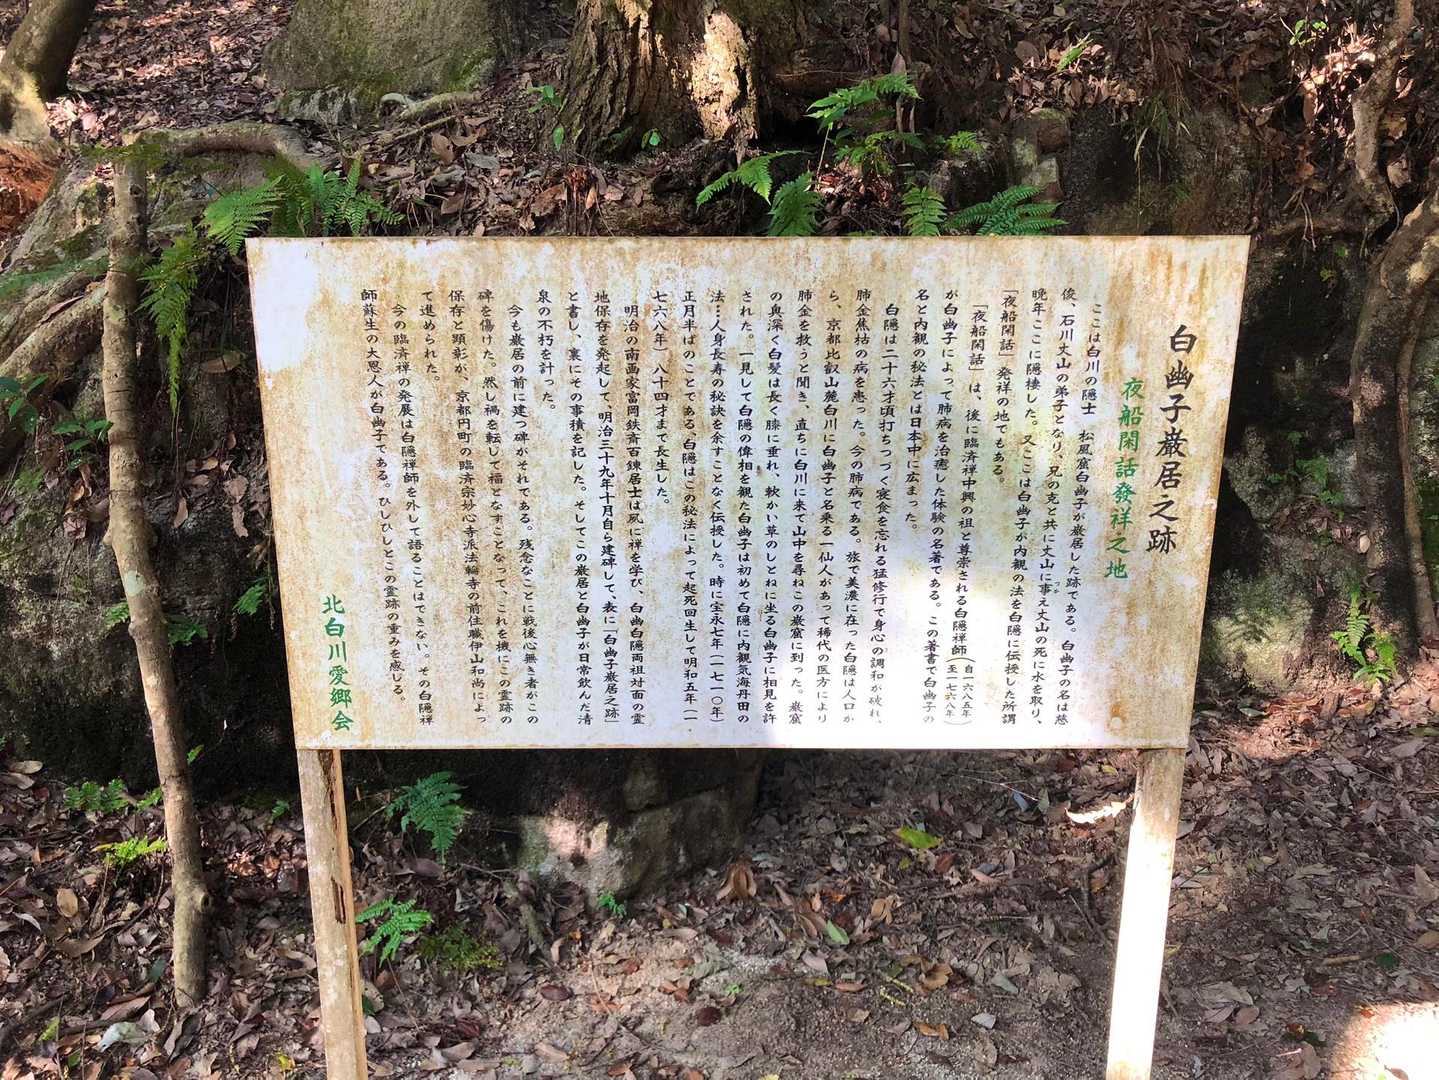 白幽子巌居之跡
夜船閑話發祥之地
ここは白川の隠士　松風窟白幽子が巌居した跡である。白幽子の名は慈
俊、石川丈山の弟子となり、兄の克と共に丈山に事え丈山の死に水を取り、
つか
晩年ここに隠棲した。又ここは白幽子が内観の法を白隠に伝授した所謂
「夜船閑話」発祥の地でもある。
「夜船閑話」は、後に臨済禅中興の祖と尊崇される白隠禅師(自一六八五年至一七六八年)
が白幽子によって肺病を治癒した体験の名著である。この著書で白幽子の
名と内観の秘法とは日本中に広まった。
白隠は二十六才頃打ちつづく寝食を忘れる猛修行で身心の調和が破れ、
肺金焦枯の病を患った。今の肺病である。旅で美濃に在った白隠は人口か
ら、京都比叡山麓白川に白幽子と名乗る一仙人があって稀代の医方により
肺金を救うと聞き、直ちに白川に来て山中を尋ねこの巌窟に到った。巌窟
の奥深く白髪は長く膝に垂れ、軟かい草のしとねに坐る白幽子に相見を許
された。一見して白隠の偉相を観た白幽子は初めて白隠に内観気海丹田の
法…人身長寿の秘訣を余すことなく伝授した。時に宝永七年(一七一〇年)
正月半ばのことである。白隠はこの秘法によって起死回生して明和五年(一
七六八年)八十四才まで長生した。
明治の南画家富岡鉄斎百錬居士は夙に禅を学び、白幽白隠両祖対面の霊
地保存を発起して、明治三十九年十月自ら建碑して、表に「白幽子巌居之跡」
と書し、裏にその事積を記した。そしてこの巌居と白幽子が日常飲んだ清
泉の不朽を計った。
今も巌居の前に建つ碑がそれである。残念なことに戦後心無き者がこの
碑を傷けた。然し禍を転して福となすことなって、これを機にこの霊跡の
保存と顕彰が、京都円町の臨済宗妙心寺派法輪寺の前住職伊山和尚によっ
て進められた。
今の臨済禅の発展は白隠禅師を外して語ることはできない。その白隠禅
師蘇生の大恩人が白幽子である。ひしひしとこの霊跡の重みを感じる。
北白川愛郷会